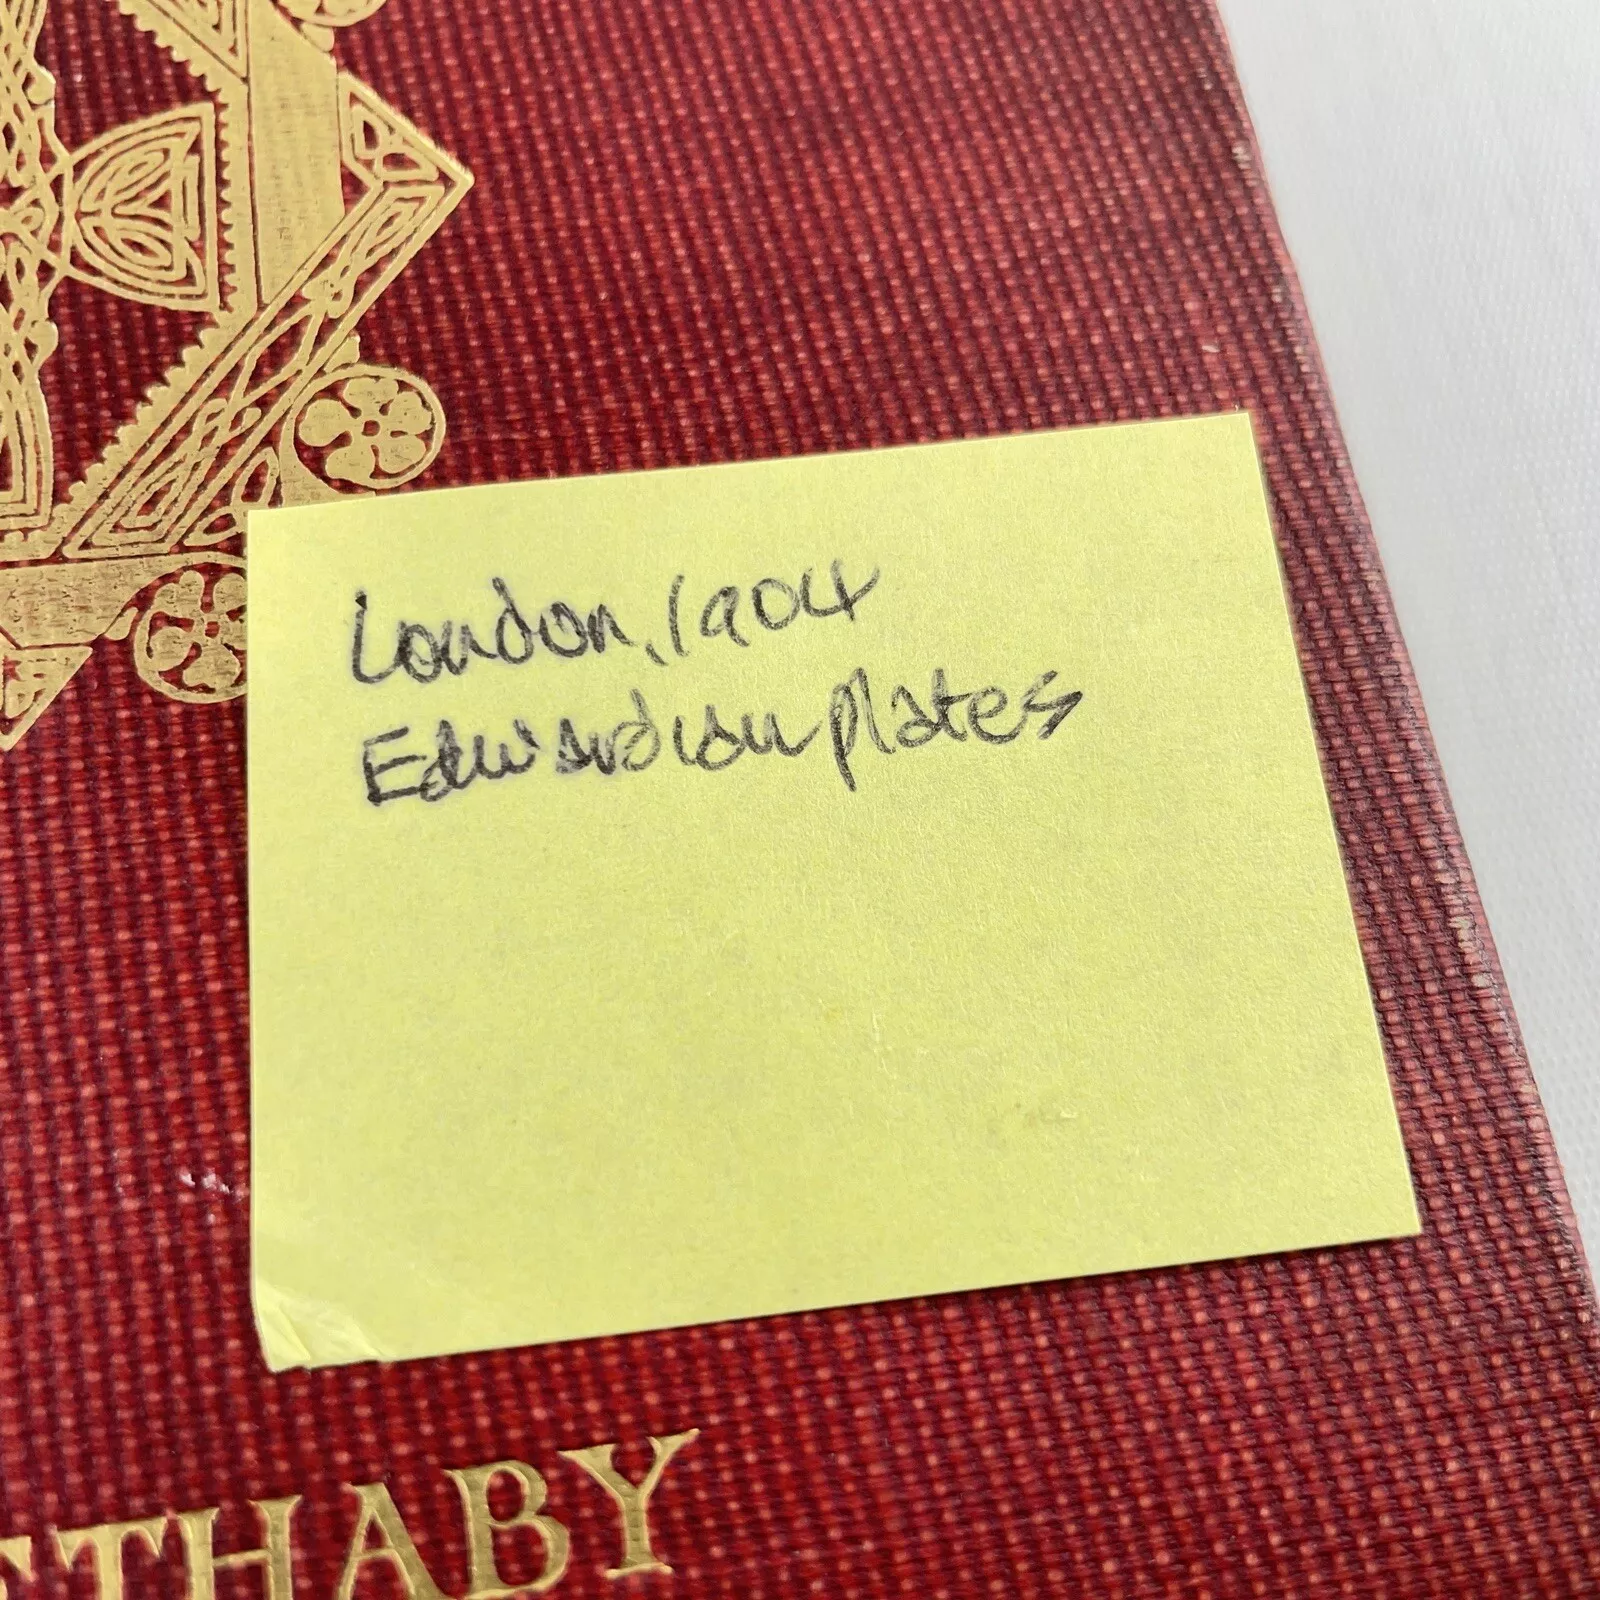 London, 1904
Edwardian plates
ETHABY